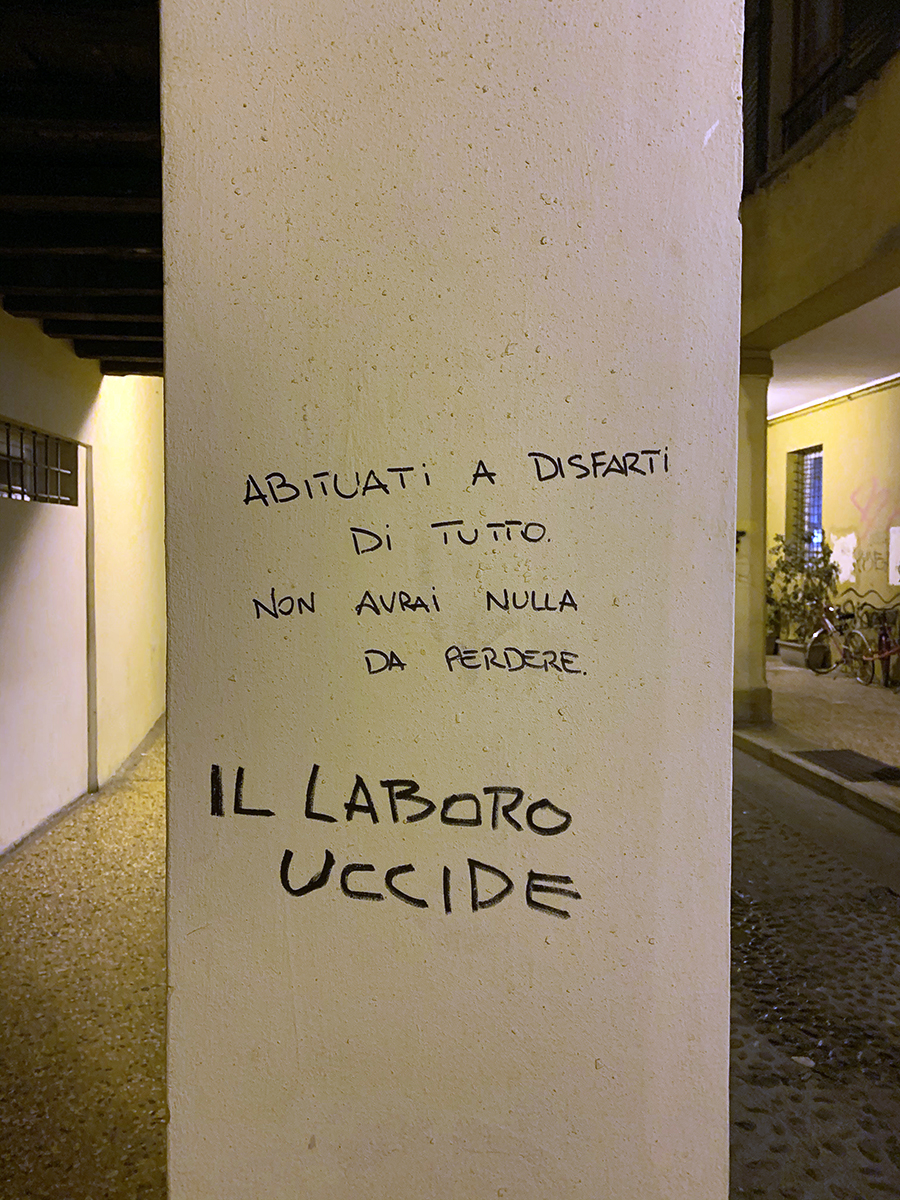 ABITUATI A DISFARTI
DI TUTTO.
NON AVRAI NULLA
DA PERDERE.
IL LABORO
UCCIDE